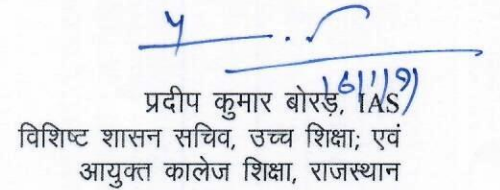 प्रदीप कुमार बोरड़, IAS
विशिष्ट शासन सचिव, उच्च शिक्षा; एवं
आयुक्त कालेज शिक्षा, राजस्थान